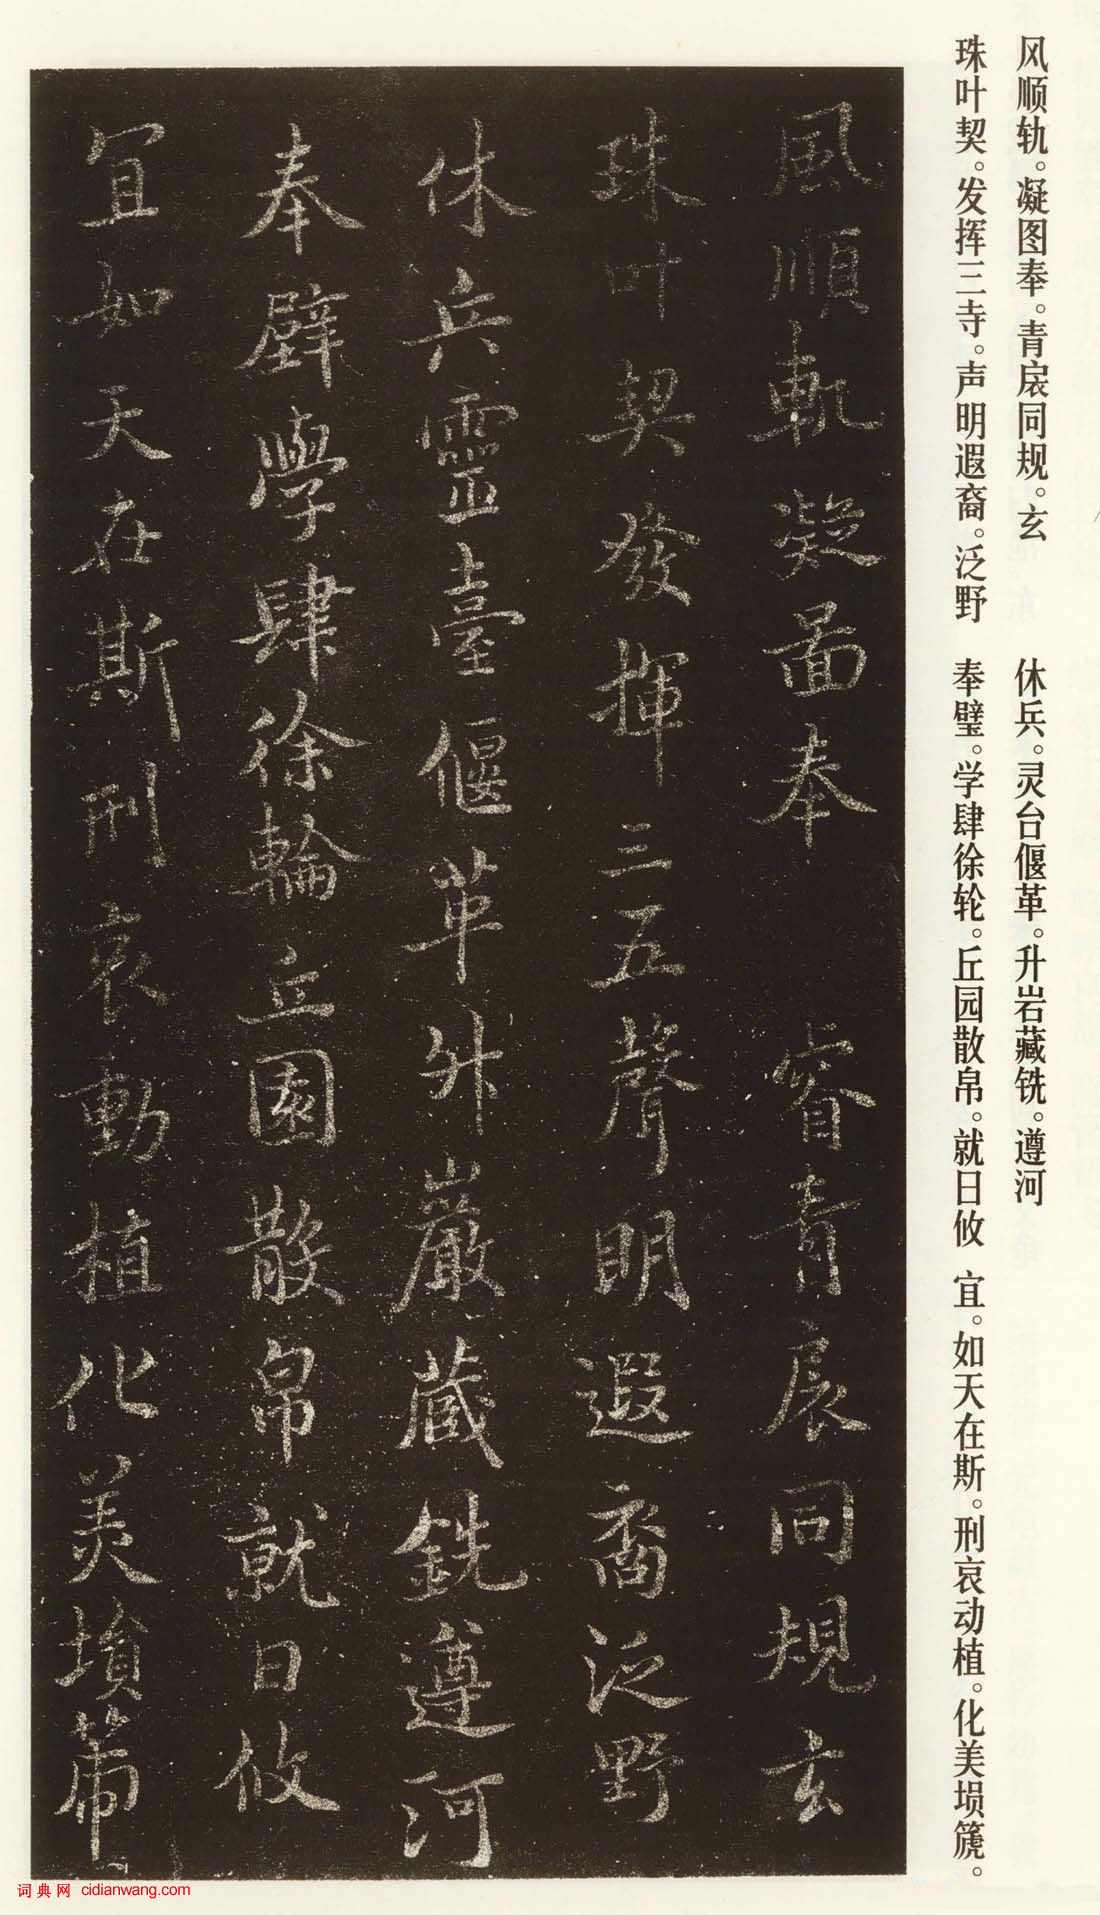 风顺轨。凝图奉。青扆同规。玄
珠叶契。发挥三寺。声明遐裔。泛野
休兵。灵台偃革。升岩藏铣。遵河
奉璧。学肆徐轮。丘园散帛。就日攸
宜。如天在斯。刑哀动植。化美埙篪。
風順軌凝圖奉 睿青扆同規玄
珠叶契發揮三五聲明遐裔泛野
休兵靈臺偃革升巖藏銑遵河
奉璧學肆徐輪丘園散帛就日攸
宜如天在斯刑哀動植化美塤
词典网 cidianwang.com